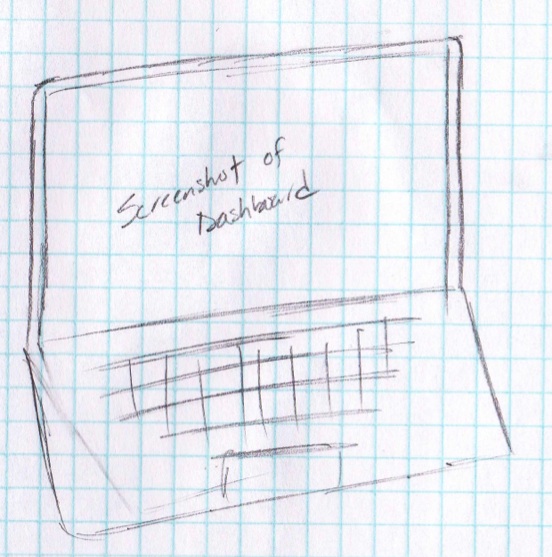 Screenshot of
Dashboard